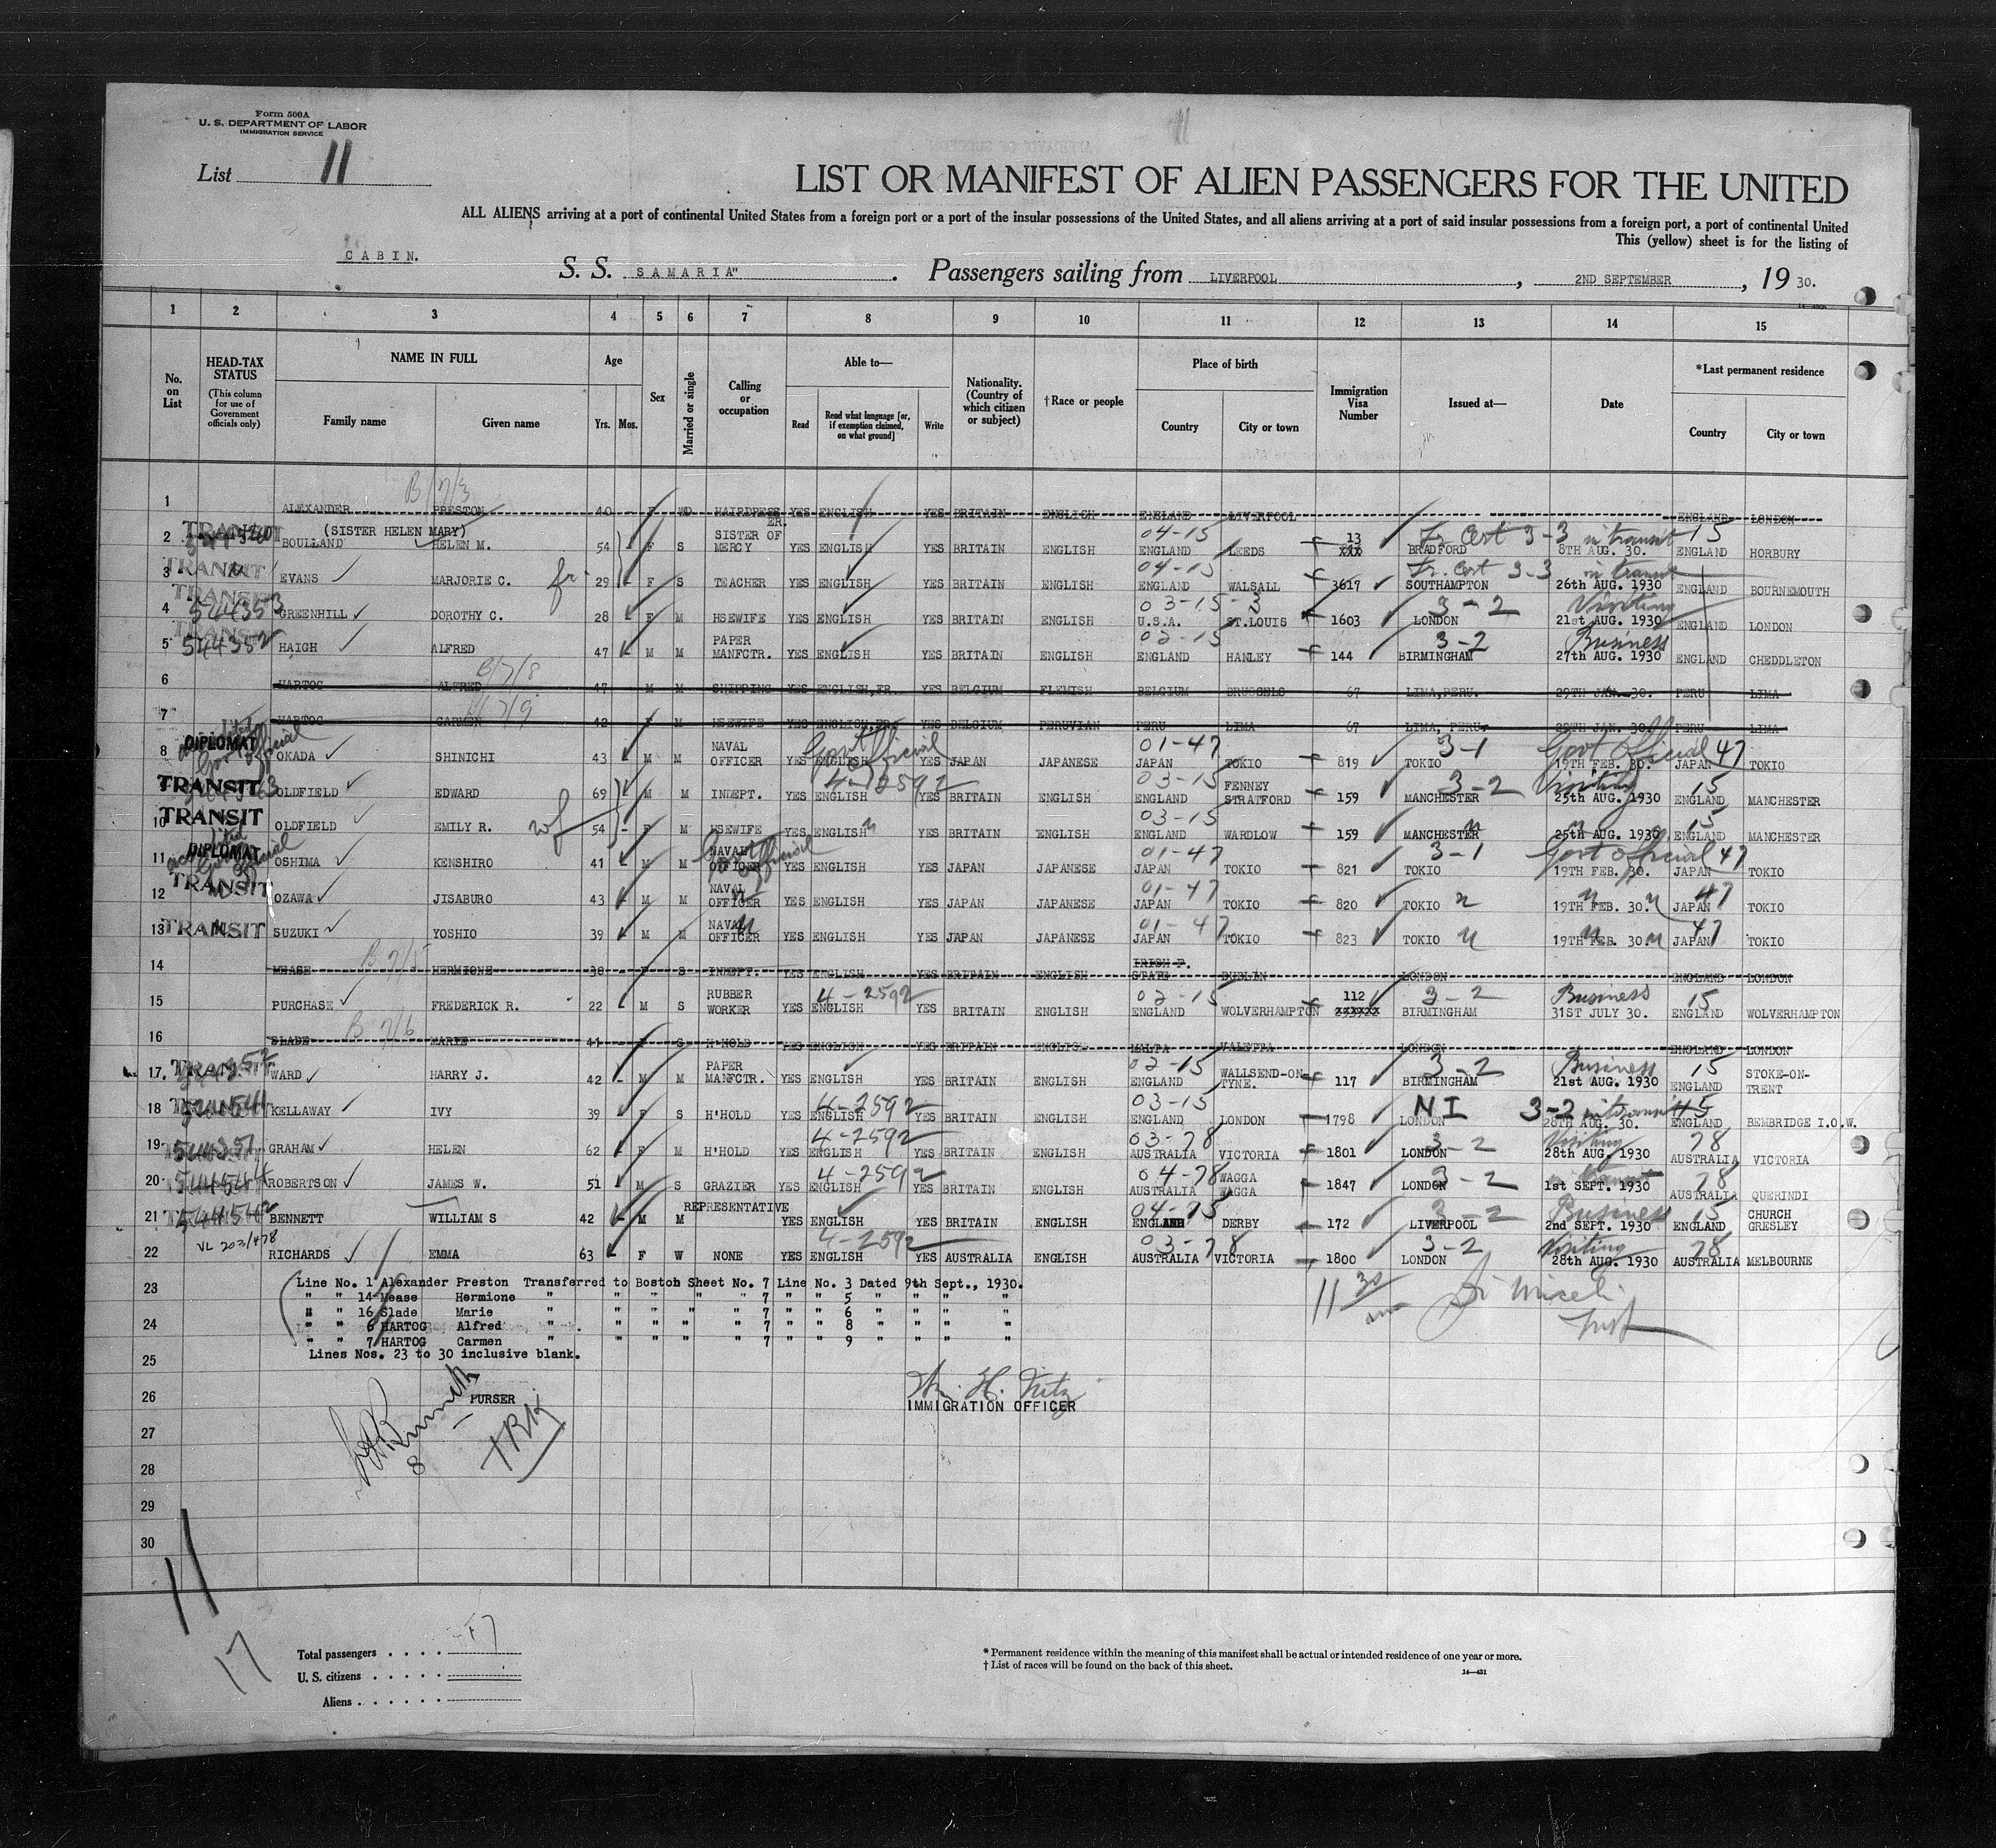 Form 500A
U. S. DEPARTMENT OF LABOR
IMMIGRATION SERVICE
List 11
LIST OR MANIFEST OF ALIEN PASSENGERS FOR THE UNITED
ALL ALIENS arriving at a port of continental United States from a foreign port or a port of the insular possessions of the United States, and all aliens arriving at a port of said insular possessions from a foreign port, a port of continental United
This (yellow) sheet is for the listing of
CABIN.
S. S. SAMARIA" . Passengers sailing from LIVERPOOL , 2ND SEPTEMBER , 19 30.
1 2 3 4 5 6 7 8 9 10 11 12 13 14 15
No. on List
HEAD-TAX STATUS (This column for use of Government officials only)
NAME IN FULL
Family name Given name
Age
Yrs. Mos.
Sex
Married or single
Calling or occupation
Able to—
Read Read what language [or, if exemption claimed, on what ground] Write
Nationality. (Country of which citizen or subject)
† Race or people
Place of birth
Country City or town
Immigration Visa Number
Issued at—
Date
*Last permanent residence
Country City or town
B/7/3
1 ALEXANDER PRESTON 40 F WD HAIRDRESSER. YES ENGLISH YES BRITAIN ENGLISH ENGLAND LIVERPOOL ENGLAND LONDON
TRANSIT (SISTER HELEN MARY) 04-15 Tr Cert 3-3 in transit 15
2 BOULLAND HELEN M. 54 F S SISTER OF MERCY YES ENGLISH YES BRITAIN ENGLISH ENGLAND LEEDS 13 xxx BRADFORD 8TH AUG. 30. ENGLAND HORBURY
TRANSIT 04-15 Tr. Cert 3-3 in transit
3 EVANS MARJORIE C. 29 F S TEACHER YES ENGLISH YES BRITAIN ENGLISH ENGLAND WALSALL 3617 SOUTHAMPTON 26th AUG. 1930 ENGLAND BOURNEMOUTH
TRANSIT 544353 03-15-3 3-2 Visiting
4 GREENHILL DOROTHY C. 28 F M HSEWIFE YES ENGLISH YES BRITAIN ENGLISH U.S.A. ST.LOUIS 1603 LONDON 21st AUG. 1930 ENGLAND LONDON
TRANSIT 544352 02-15 3-2 Business
5 HAIGH ALFRED 47 M M PAPER MANFCTR. YES ENGLISH YES BRITAIN ENGLISH ENGLAND HANLEY 144 BIRMINGHAM 27th AUG. 1930 ENGLAND CHEDDLETON
B/7/8
6 HARTOG ALFRED 47 M M SHIPPING YES ENGLISH,FR. YES BELGIUM FLEMISH BELGIUM BRUSSELS 67 LIMA,PERU. 29TH JAN. 30. PERU LIMA
B/7/9
7 HARTOG CARMEN 42 F M HSEWIFE YES ENGLISH,FR. YES BELGIUM PERUVIAN PERU LIMA 67 LIMA, PERU. 29TH JAN. 30. PERU LIMA
DIPLOMAT Govt official 01-47 3-1 Govt official 47
8 OKADA SHINICHI 43 M M NAVAL OFFICER YES ENGLISH YES JAPAN JAPANESE JAPAN TOKIO 819 TOKIO 19TH FEB. 30. JAPAN TOKIO
TRANSIT 4-2592 03-15 3-2 Visiting 15
9 OLDFIELD EDWARD 69 M M INDEPT. YES ENGLISH YES BRITAIN ENGLISH ENGLAND FENNEY STRATFORD 159 MANCHESTER 25th AUG. 1930 ENGLAND MANCHESTER
TRANSIT wf 03-15 15
10 OLDFIELD EMILY R. 54 F M HSEWIFE YES ENGLISH YES BRITAIN ENGLISH ENGLAND WARDLOW 159 MANCHESTER 25th AUG. 1930 ENGLAND MANCHESTER
DIPLOMAT Govt official 01-47 3-1 Govt official 47
11 OSHIMA KENSHIRO 41 M M NAVAL OFFICER YES ENGLISH YES JAPAN JAPANESE JAPAN TOKIO 821 TOKIO 19TH FEB. 30. JAPAN TOKIO
TRANSIT 01-47 47
12 OZAWA JISABURO 43 M M NAVAL OFFICER YES ENGLISH YES JAPAN JAPANESE JAPAN TOKIO 820 TOKIO 19TH FEB. 30. JAPAN TOKIO
TRANSIT 01-47 47
13 SUZUKI YOSHIO 39 M M NAVAL OFFICER YES ENGLISH YES JAPAN JAPANESE JAPAN TOKIO 823 TOKIO 19TH FEB. 30 JAPAN TOKIO
B 7/5
14 MEASE HERMIONE 38 F S INDEPT. YES ENGLISH YES BRITAIN ENGLISH IRISH F. STATE DUBLIN LONDON ENGLAND LONDON
4-2592 02-15 3-2 Business 15
15 PURCHASE FREDERICK R. 22 M S RUBBER WORKER YES ENGLISH YES BRITAIN ENGLISH ENGLAND WOLVERHAMPTON 112 BIRMINGHAM 31ST JULY 30. ENGLAND WOLVERHAMPTON
B 7/6
16 SLADE MARIE 41 F S H'HOLD YES ENGLISH YES BRITAIN ENGLISH MALTA VALETTA LONDON ENGLAND LONDON
TRANSIT 02-15 3-2 Business 15
17 WARD HARRY J. 42 M M PAPER MANFCTR. YES ENGLISH YES BRITAIN ENGLISH ENGLAND WALLSEND-ON-TYNE. 117 BIRMINGHAM 21st AUG. 1930 ENGLAND STOKE-ON-TRENT
544541 4-2592 03-15 NI 3-2 in transit 15
18 KELLAWAY IVY 39 F S H'HOLD YES ENGLISH YES BRITAIN ENGLISH ENGLAND LONDON 1798 LONDON 28TH AUG. 30. ENGLAND BEMBRIDGE I.O.W.
544351 4-2592 03-78 3-2 Visiting 78
19 GRAHAM HELEN 62 F M H'HOLD YES ENGLISH YES BRITAIN ENGLISH AUSTRALIA VICTORIA 1801 LONDON 28th AUG. 1930 AUSTRALIA VICTORIA
544544 4-2592 04-78 3-2 in transit 78
20 ROBERTSON JAMES W. 51 M S GRAZIER YES ENGLISH YES BRITAIN ENGLISH AUSTRALIA WAGGA WAGGA 1847 LONDON 1st SEPT. 1930 AUSTRALIA QUERINDI
544542 04-15 3-2 Business 15
21 BENNETT WILLIAM S 42 M M REPRESENTATIVE YES ENGLISH YES BRITAIN ENGLISH ENGLAND DERBY 172 LIVERPOOL 2nd SEPT. 1930 ENGLAND CHURCH GRESLEY
VL 203/478 4-2592 03-78 3-2 Visiting 78
22 RICHARDS EMMA 63 F W NONE YES ENGLISH YES AUSTRALIA ENGLISH AUSTRALIA VICTORIA 1800 LONDON 28th AUG. 1930 AUSTRALIA MELBOURNE
23 Line No. 1 Alexander Preston Transferred to Boston Sheet No. 7 Line No. 3 Dated 9th Sept., 1930.
" " 14 Mease Hermione " " " " " 7 " " 5 " " " "
" " 16 Slade Marie " " " " " 7 " " 6 " " " "
24 " " 6 HARTOG Alfred " " " " " 7 " " 8 " " " "
" " 7 HARTOG Carmen " " " " " 7 " " 9 " " " "
Lines Nos. 23 to 30 inclusive blank.
11 30
25
26 PURSER
Wm. H. Fritz
IMMIGRATION OFFICER
27
28
29
30
11
17
Total passengers . . . . 17
U. S. citizens . . . . .
Aliens . . . . . .
* Permanent residence within the meaning of this manifest shall be actual or intended residence of one year or more.
† List of races will be found on the back of this sheet.
14—431